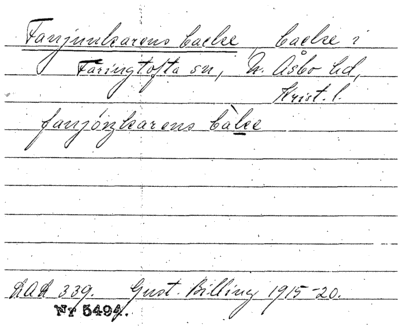 Fanjunkarens backe, backe i
Färingtofta sn, N. Åsbo hd,
Krist. l.
fanjóŋkarens bàke
AOA 339. Gust. Billing 1915-20.
Nr 5494.